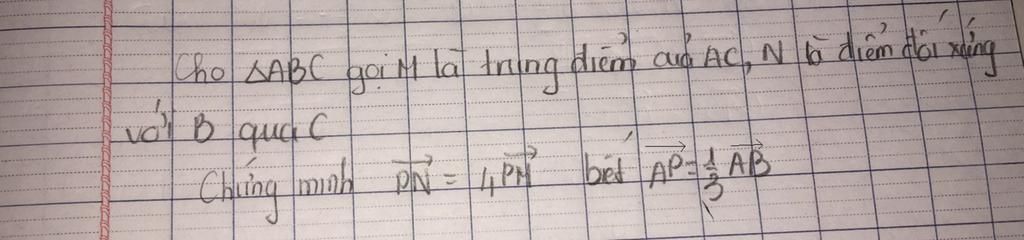 Cho △ABC gọi M là trung điểm của AC, N là điểm đối xứng
với B qua C
Chứng minh \overrightarrow{PN} = 4\overrightarrow{PM} biết \overrightarrow{AP} = \frac{1}{3} \overrightarrow{AB}